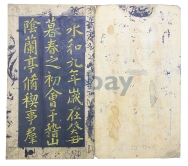 永和九年歲在癸丑
暮春之初會于稽山
陰蘭亭脩稧事羣
ebay